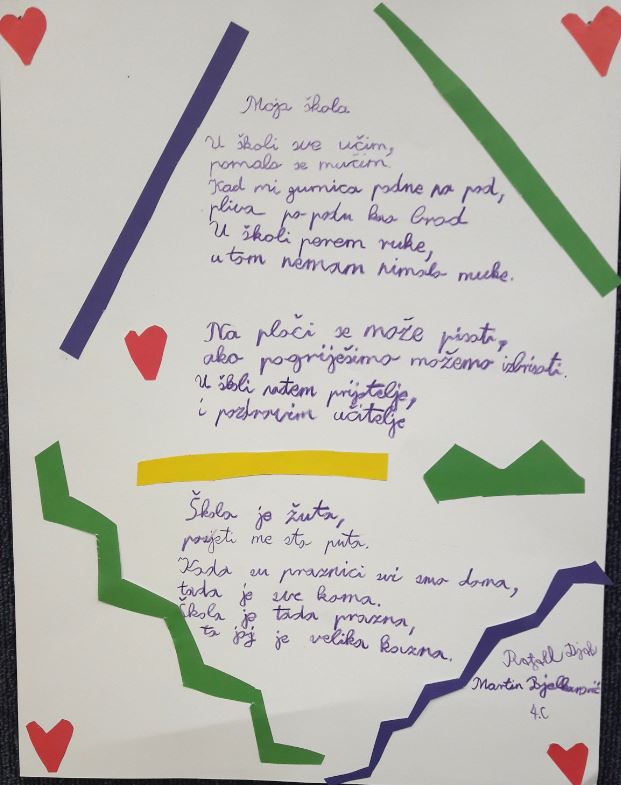 Moja škola
U školi sve učim,
pomalo se mučim.
Kad mi gumica padne na pod,
pliva po podu kao brod
U školi perem ruke,
u tom nemam nimalo muke.
Na ploči se može pisati,
ako pogriješimo možemo izbrisati.
U školi sretem prijatelje,
i pozdravim učitelje
Škola je žuta,
posjeti me sto puta.
Kada su praznici svi smo doma,
tada je sve koma.
Škola je tada prazna,
to joj je velika kazna.
Martin
4.c